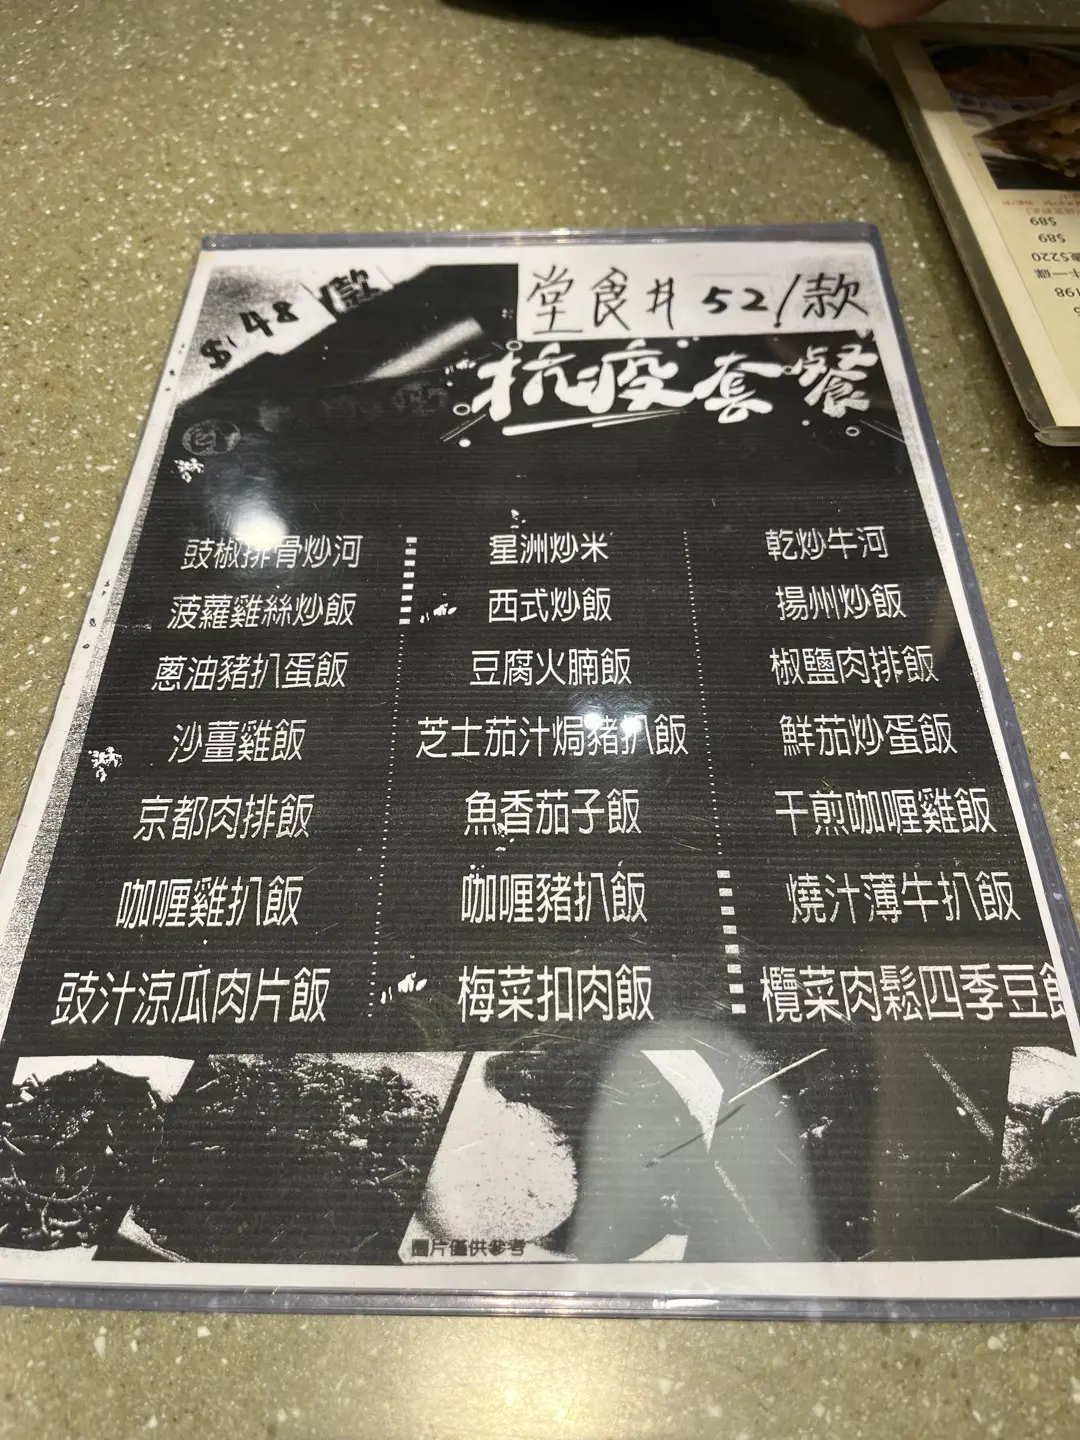 $48/款
堂食$52/款
抗疫套餐
豉椒排骨炒河 星洲炒米 乾炒牛河
菠蘿雞絲炒飯 西式炒飯 揚州炒飯
蔥油豬扒蛋飯 豆腐火腩飯 椒鹽肉排飯
沙薑雞飯 芝士茄汁焗豬扒飯 鮮茄炒蛋飯
京都肉排飯 魚香茄子飯 干煎咖喱雞飯
咖喱雞扒飯 咖喱豬扒飯 燒汁薄牛扒飯
豉汁涼瓜肉片飯 梅菜扣肉飯 欖菜肉鬆四季豆飯
圖片僅供參考
$89
$89
$220
牛一碟
198